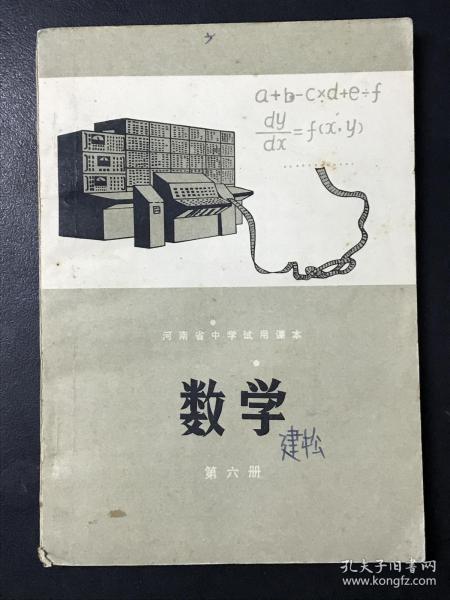 a+b-c×d+e÷f
dy/dx=f(x,y)
河南省中学试用课本
数学
建松
第六册
孔夫子旧书网
www.kongfz.com